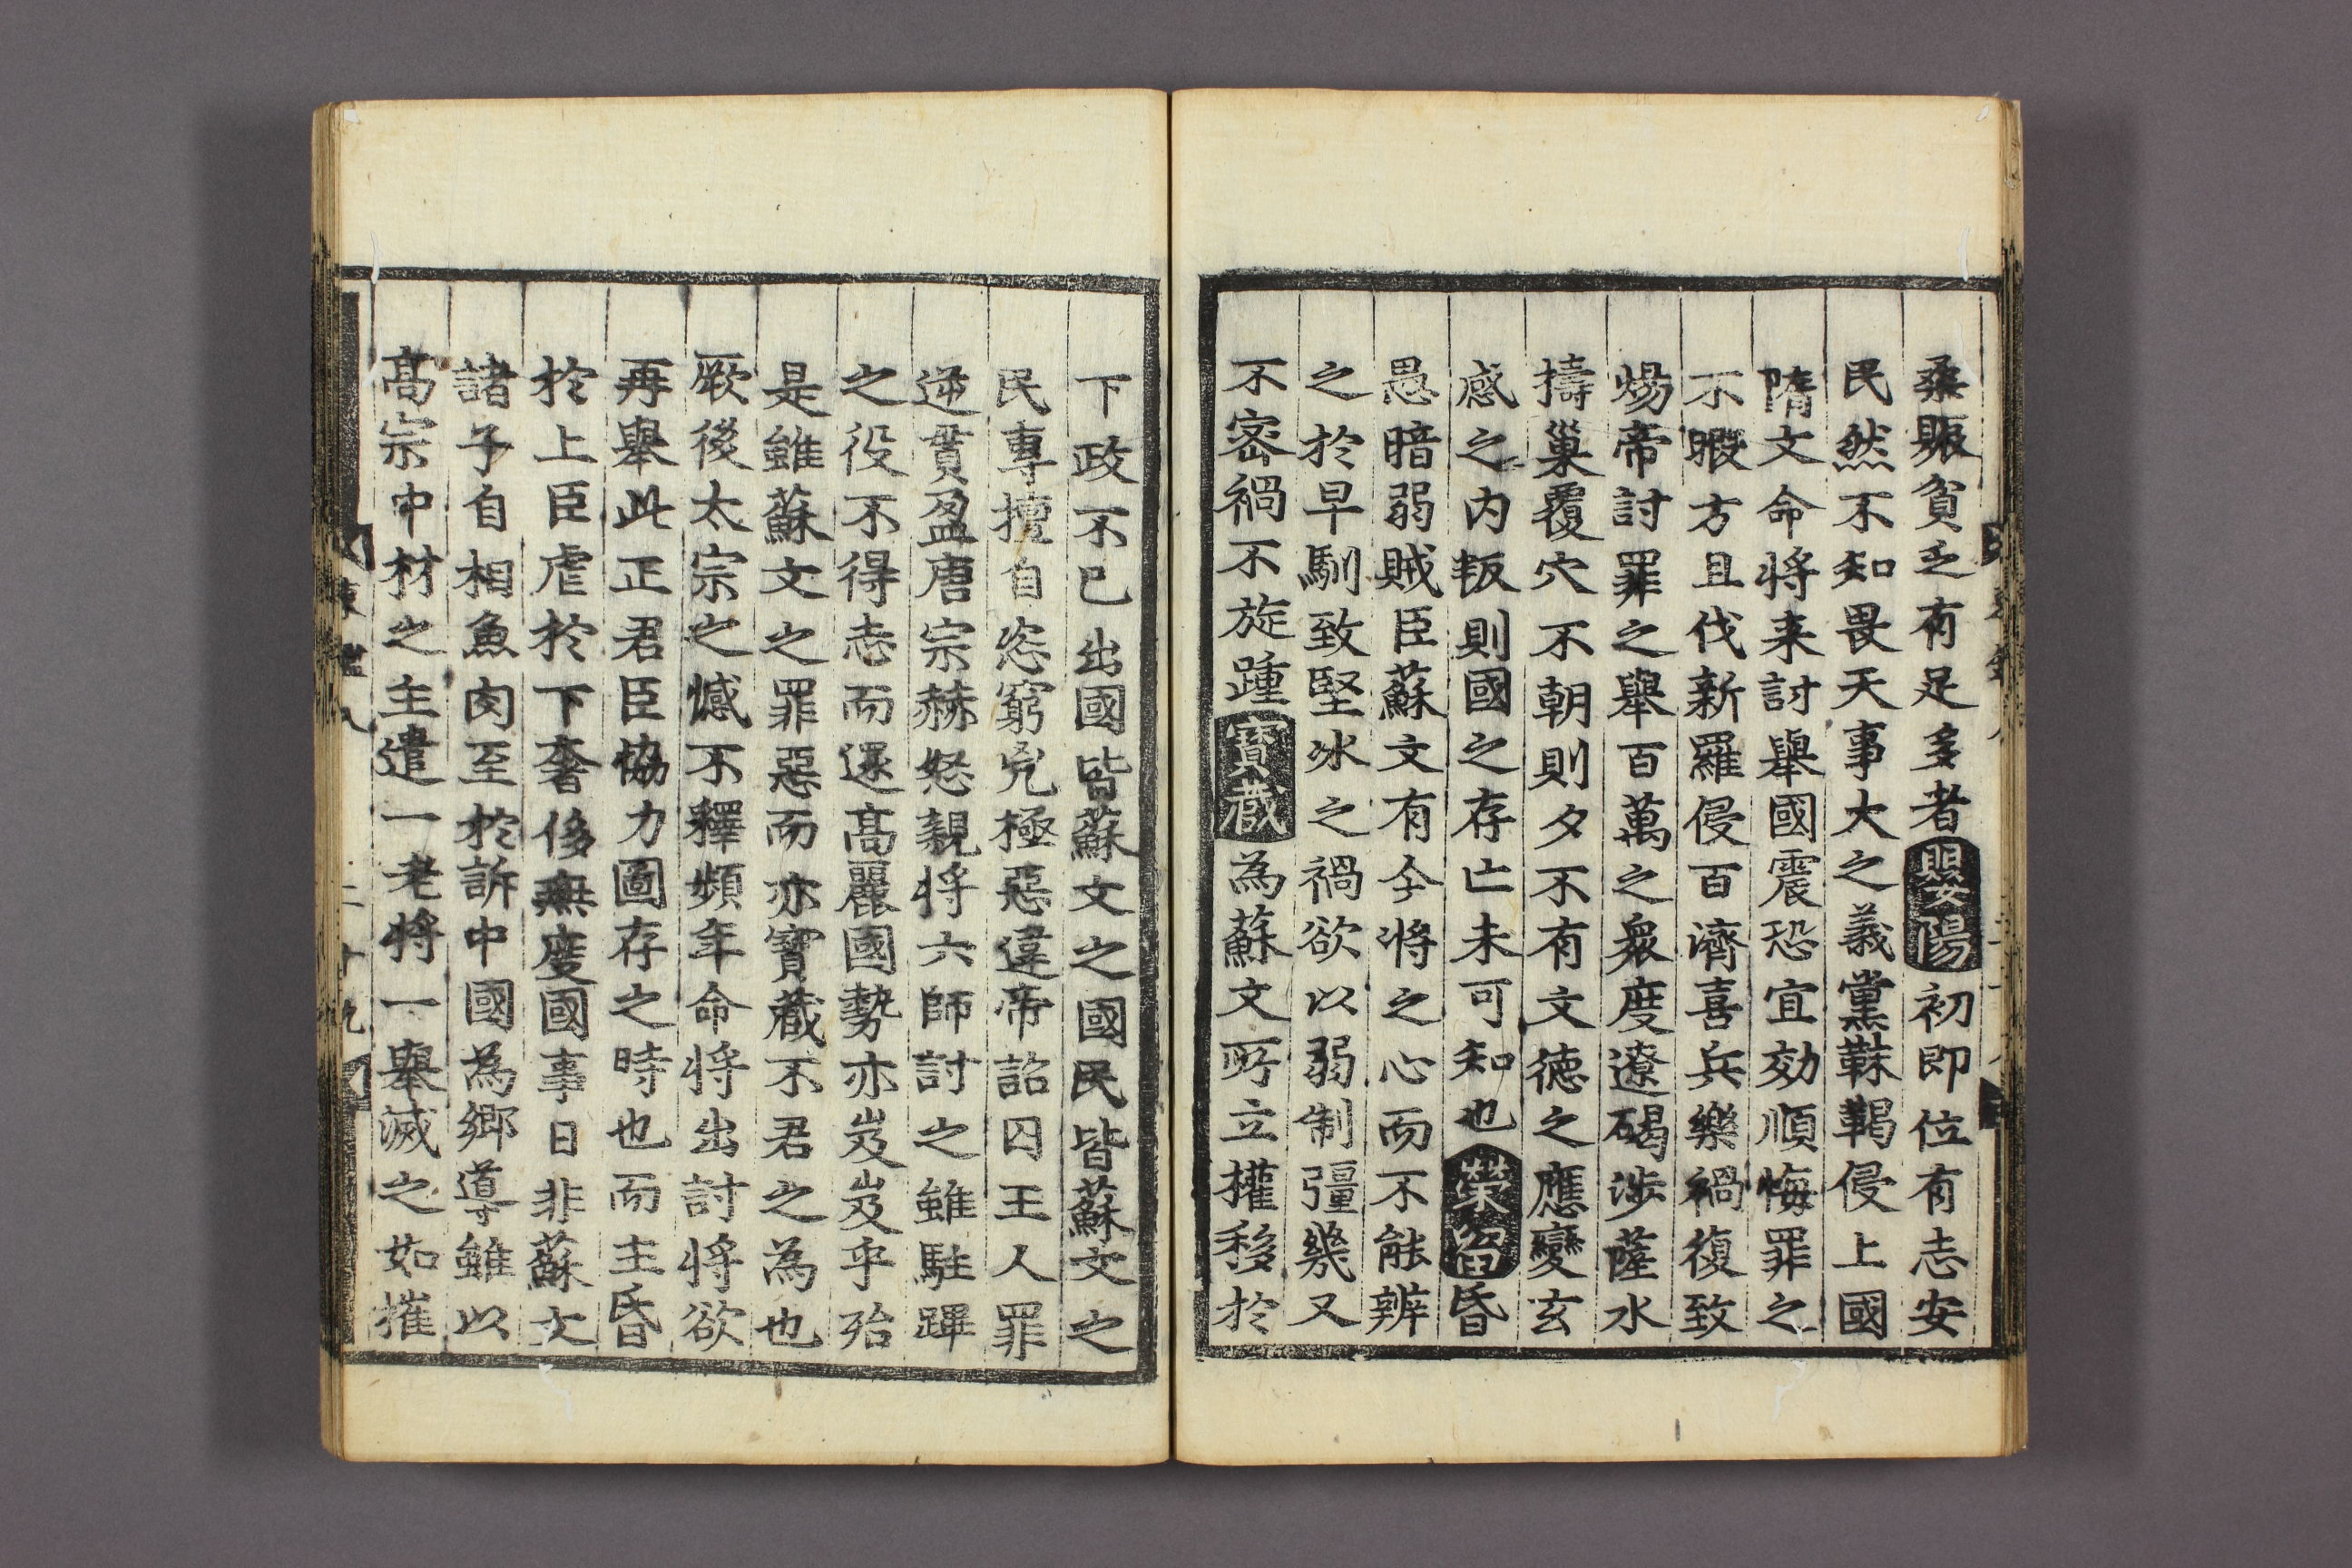 桑賑貧乏有足多者嬰陽初即位有志安
民然不知畏天事大之義黨靺鞨侵上國
隋文命將来討舉國震恐宜効順悔罪之
不暇方且伐新羅侵百濟喜兵樂禍復致
煬帝討罪之舉百萬之衆度遼碣涉薩水
擣巢覆穴不朝則夕不有文德之應變玄
感之内叛則國之存亡未可知也榮留昏
愚暗弱賊臣蘇文有今將之心而不能辨
之於早馴致堅冰之禍欲以弱制彊幾又
不密禍不旋踵寶蔵為蘇文所立權移於
下政不已出國皆蘇文之國民皆蘇文之
民專擅自恣窮兇極惡違帝詔囚王人罪
逆貫盈唐宗赫怒親將六師討之雖駐蹕
之役不得志而還高麗國勢亦岌岌乎殆
是雖蘇文之罪惡而亦寶蔵不君之為也
厥後太宗之憾不釋頻年命將出討將欲
再舉此正君臣協力圖存之時也而主昏
於上臣虐於下奢侈無度國事日非蘇文
諸子自相魚肉至於訴中國為鄉導雖以
高宗中材之主遣一老將一舉滅之如摧
東鑑八